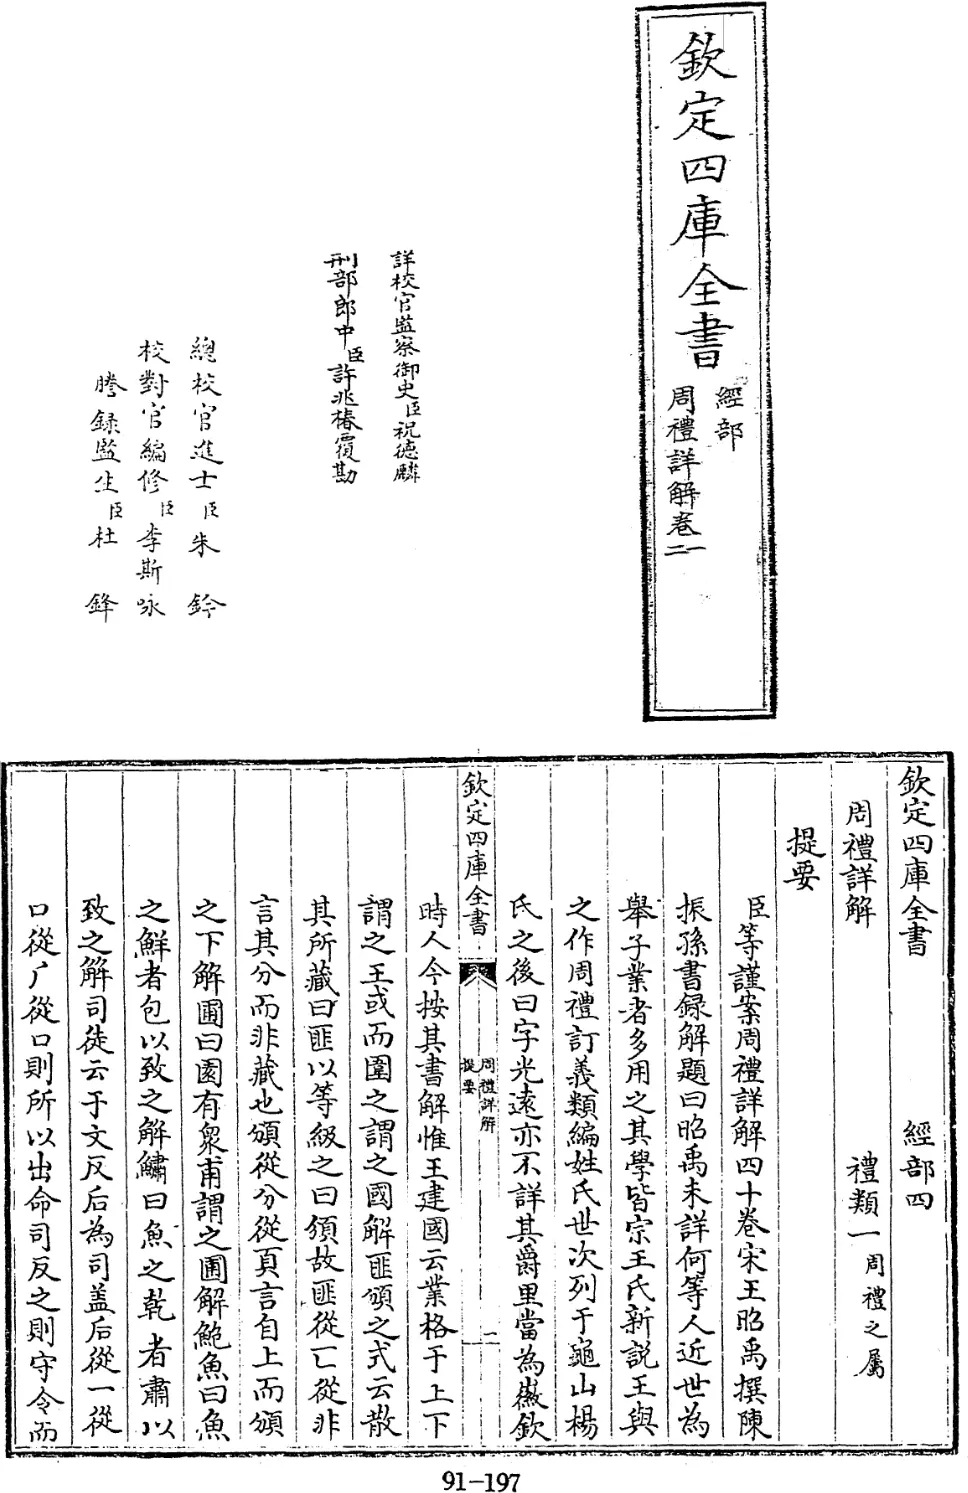 欽定四庫全書
經部
周禮詳解卷一二
詳校官監察御史臣祝德麟
刑部郎中臣許兆椿覆勘
總校官進士臣朱鈐
校對官編修臣李斯咏
謄録監生臣杜鋒
欽定四庫全書　經部四
周禮詳解　禮類一周禮之屬
提要
臣等謹案周禮詳解四十卷宋王昭禹撰陳
振孫書録解題曰昭禹未詳何等人近世為
舉子業者多用之其學皆宗王氏新説王與
之作周禮訂義類編姓氏世次列于龜山楊
氏之後曰字光遠亦不詳其爵里當為徽欽
欽定四庫全書
周禮詳解
提要
一
二
時人今按其書解惟王建國云業格于上下
謂之王或而圍之謂之國解匪頒之式云散
其所藏曰匪以等級之曰頒故匪從匚從非
言其分而非藏也頒從分從頁言自上而頒
之下解圃曰園有衆甫謂之圃解鮑魚曰魚
之鮮者包以致之解鱐曰魚之乾者肅以
致之解司徒云于文反后為司盖后從一從
口從厂從口則所以出命司反之則守令而
91-197